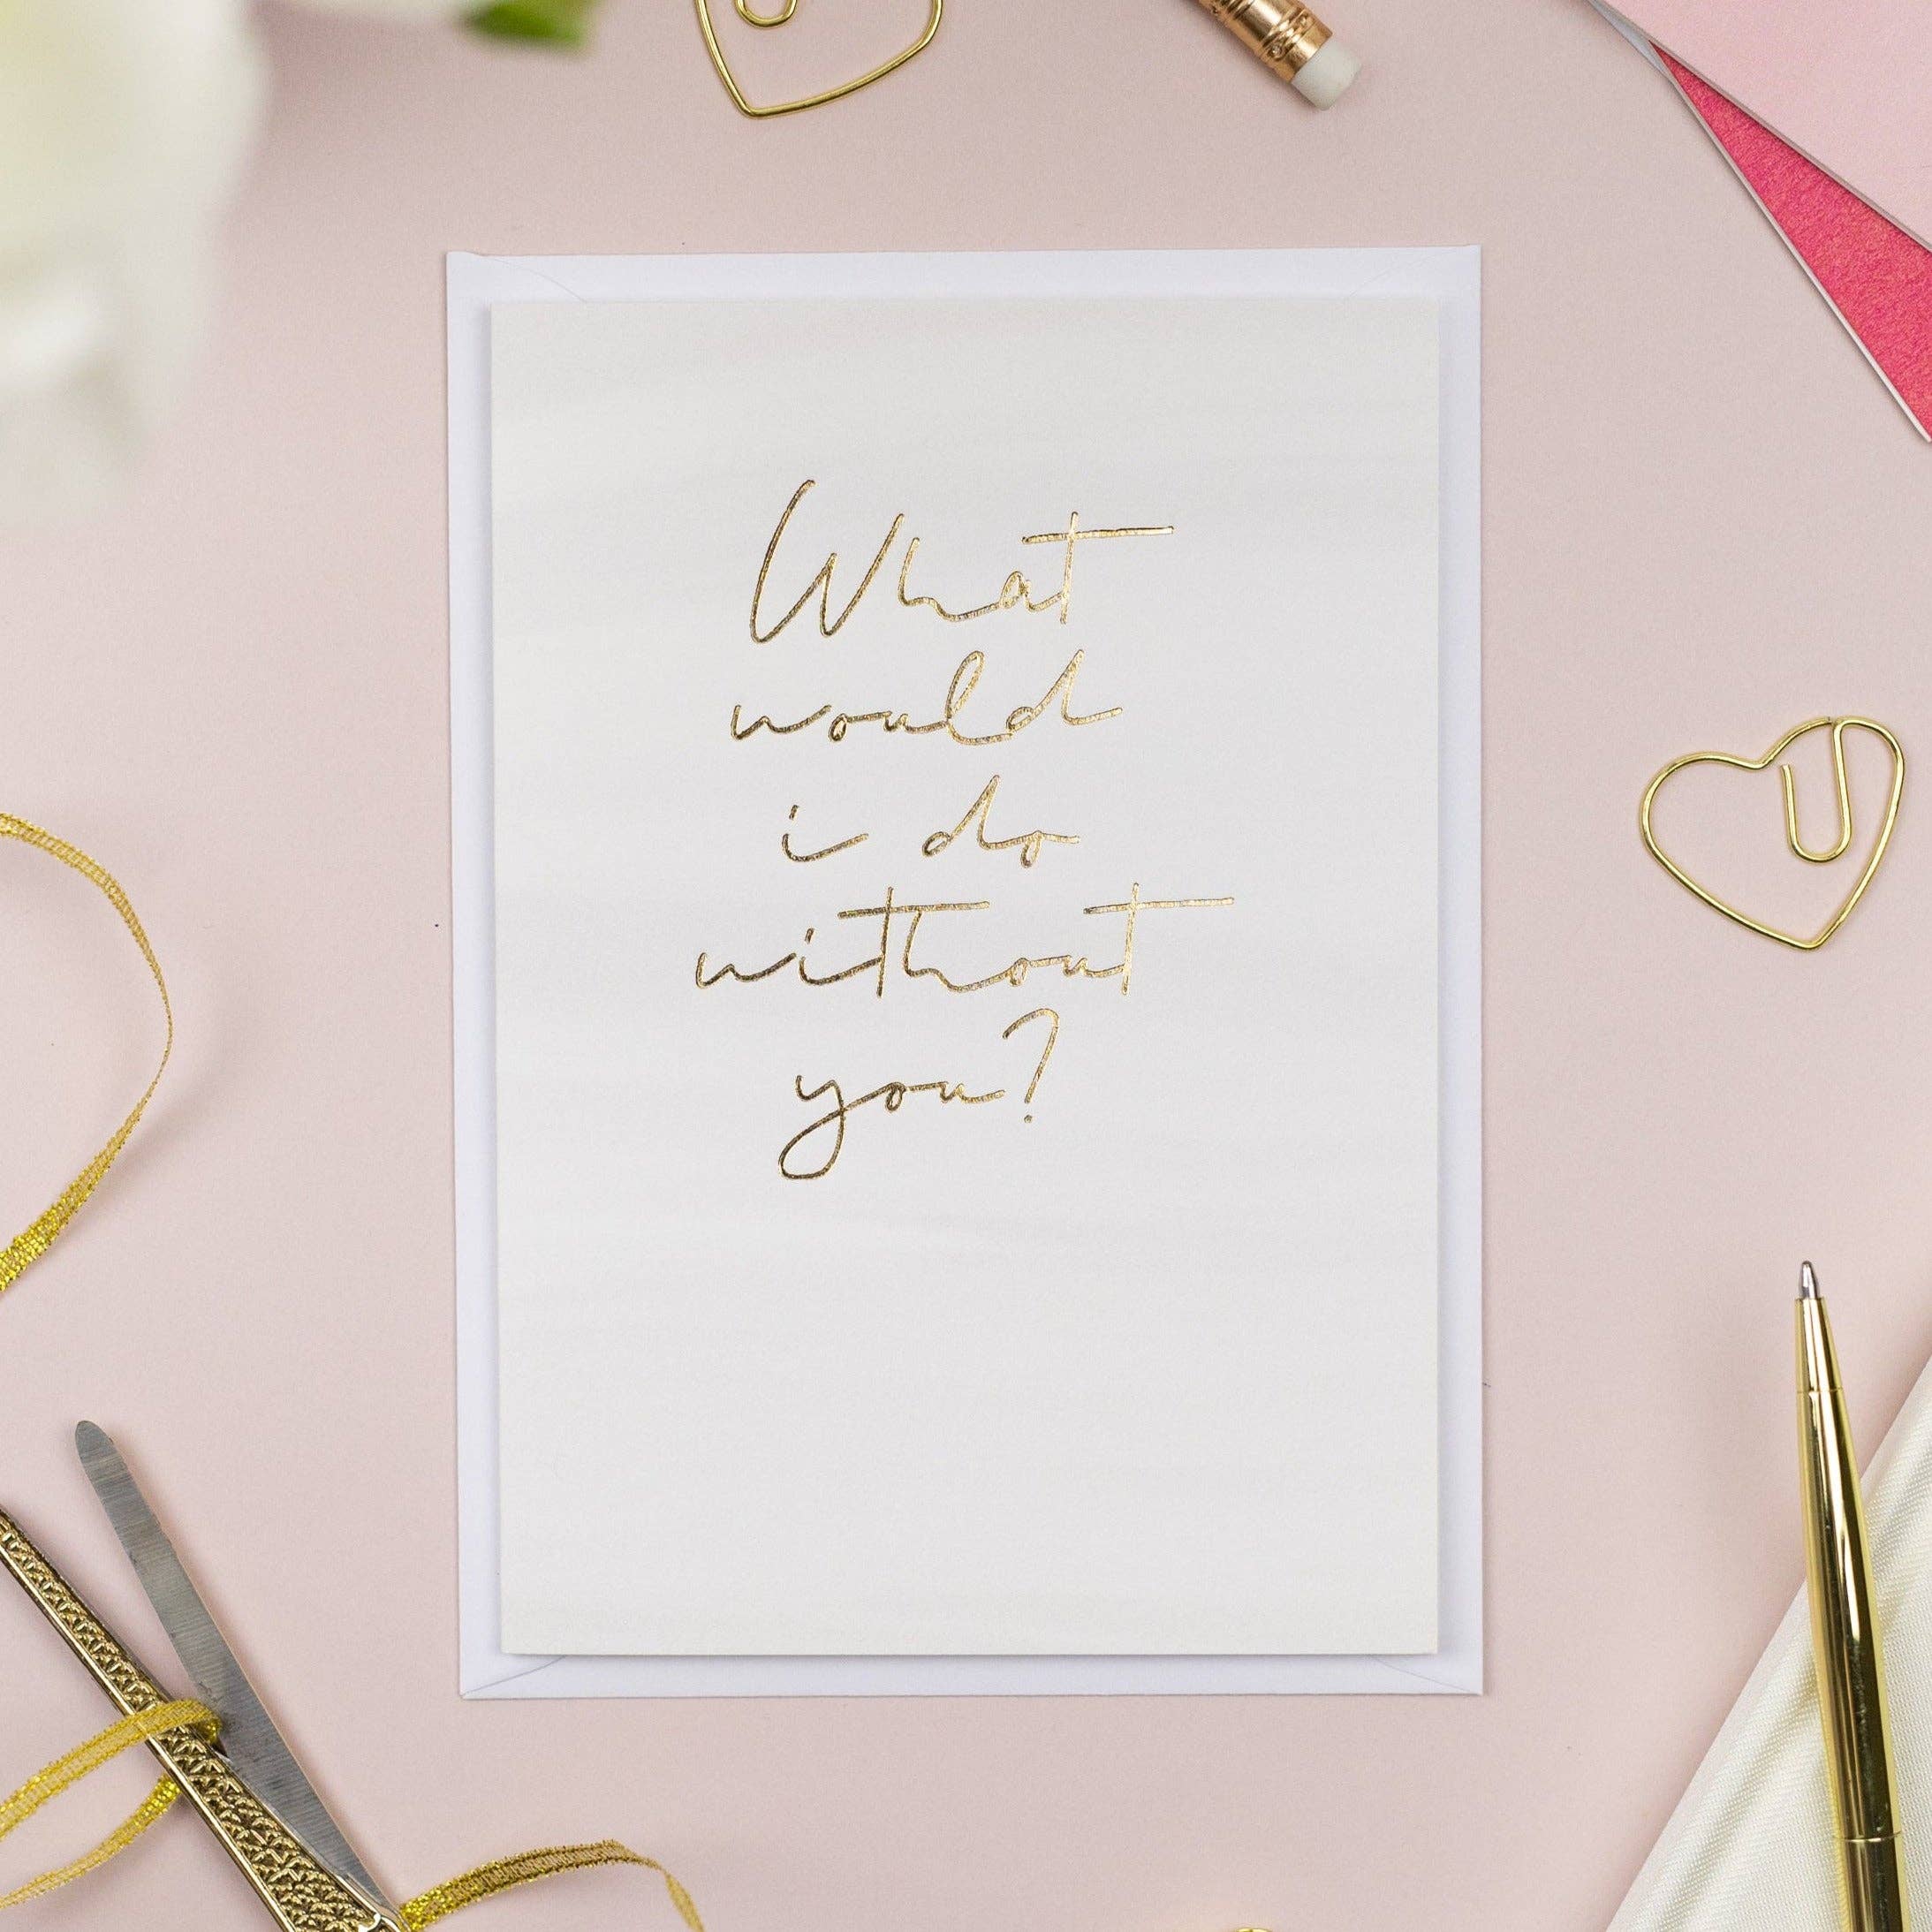 What
would
i do
without
you?